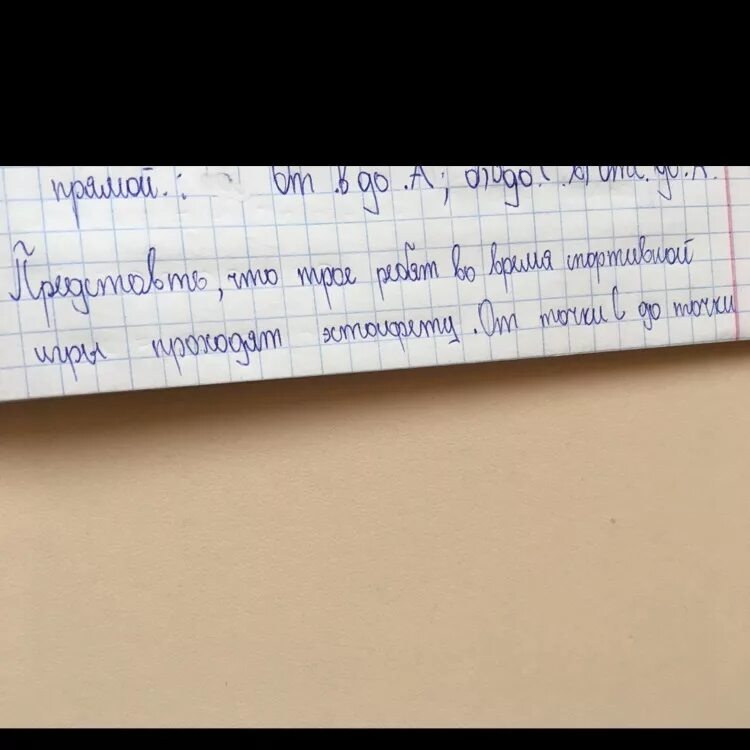 прямой.: от .в до .А; до .А.
Представть, что трое ребят во время спортивной
игры проходят эстофету. От точки С до точки